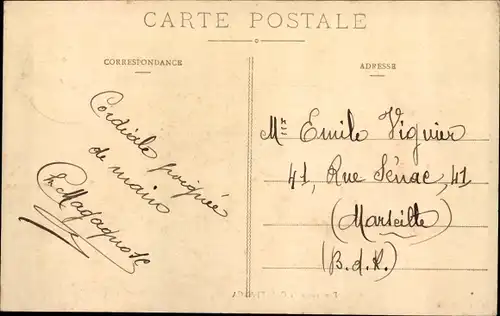 CARTE POSTALE
CORRESPONDANCE
ADRESSE
Cordiale poignée
de main
Mr Emile Viguier
41, Rue Sénac, 41
(Marseille)
(B.d.R.)